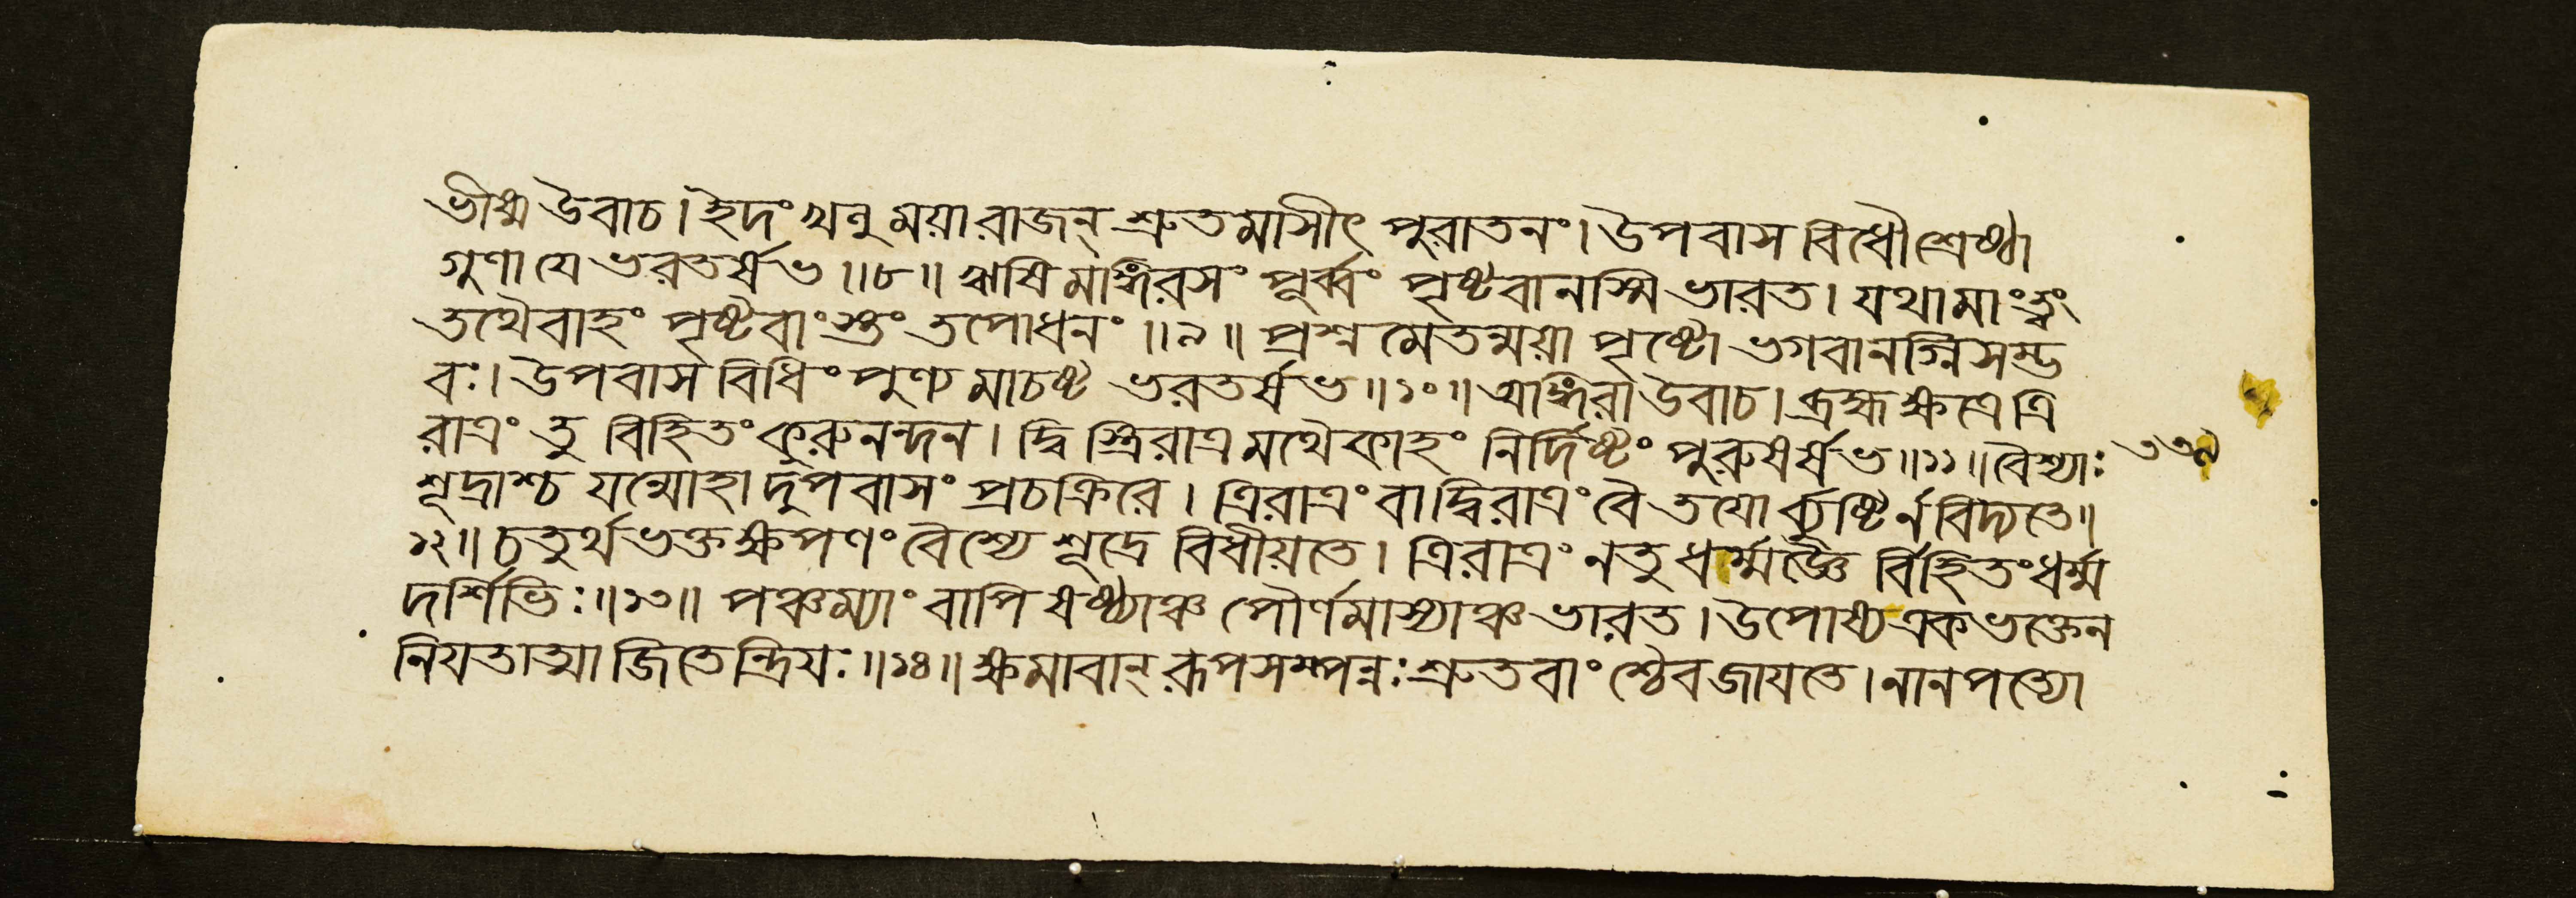 ভীষ্ম উবাচ। ইদং খলু ময়া রাজন্ শ্রুতমাসীৎ পুরাতনং। উপবাস বিধৌ শ্রেষ্ঠা
গুণা যে ভরতর্ষভ॥৮॥ ঋষিমাঙ্গিরসং পূর্ব্বং পৃষ্টবানস্মি ভারত। যথা মাং ত্বং
তথৈবাহং পৃষ্টবাংস্তং তপোধনং॥৯॥ প্রশ্নমেতন্ময়া পৃষ্টো ভগবানগ্নিসম্ভ
বঃ। উপবাস বিধিং পুণ্যমাচষ্ট ভরতর্ষভ॥১০॥ অঙ্গিরা উবাচ। ব্রহ্মক্ষত্রে ত্রি
রাত্রং তু বিহিতং কুরুনন্দন। দ্বিস্ত্রিরাত্রমথৈকাহং নির্দিষ্টং পুরুষর্ষভ॥১১॥ বৈশ্যাঃ
শূদ্রাশ্চ যন্মোহাদুপবাসং প্রচক্রিরে। ত্রিরাত্রং বা দ্বিরাত্রং বৈ তয়োর্ব্যুষ্টির্ন বিদ্যতে॥
১২॥ চতুর্থভক্তক্ষপণং বৈশ্যে শূদ্রে বিধীয়তে। ত্রিরাত্রং নতু ধর্ম্মজ্ঞৈ র্বিহিতং ধর্ম্ম
দর্শিভিঃ॥১৩॥ পঞ্চম্যাং বাপি ষষ্ঠ্যাঞ্চ পৌর্ণমাস্যাঞ্চ ভারত। উপোষ্য একভক্তেন
নিযতাত্মা জিতেন্দ্রিযঃ॥১৪॥ ক্ষমাবান্ রূপসম্পন্নঃ শ্রুতবাংশ্চৈব জাযতে। নানপত্যো